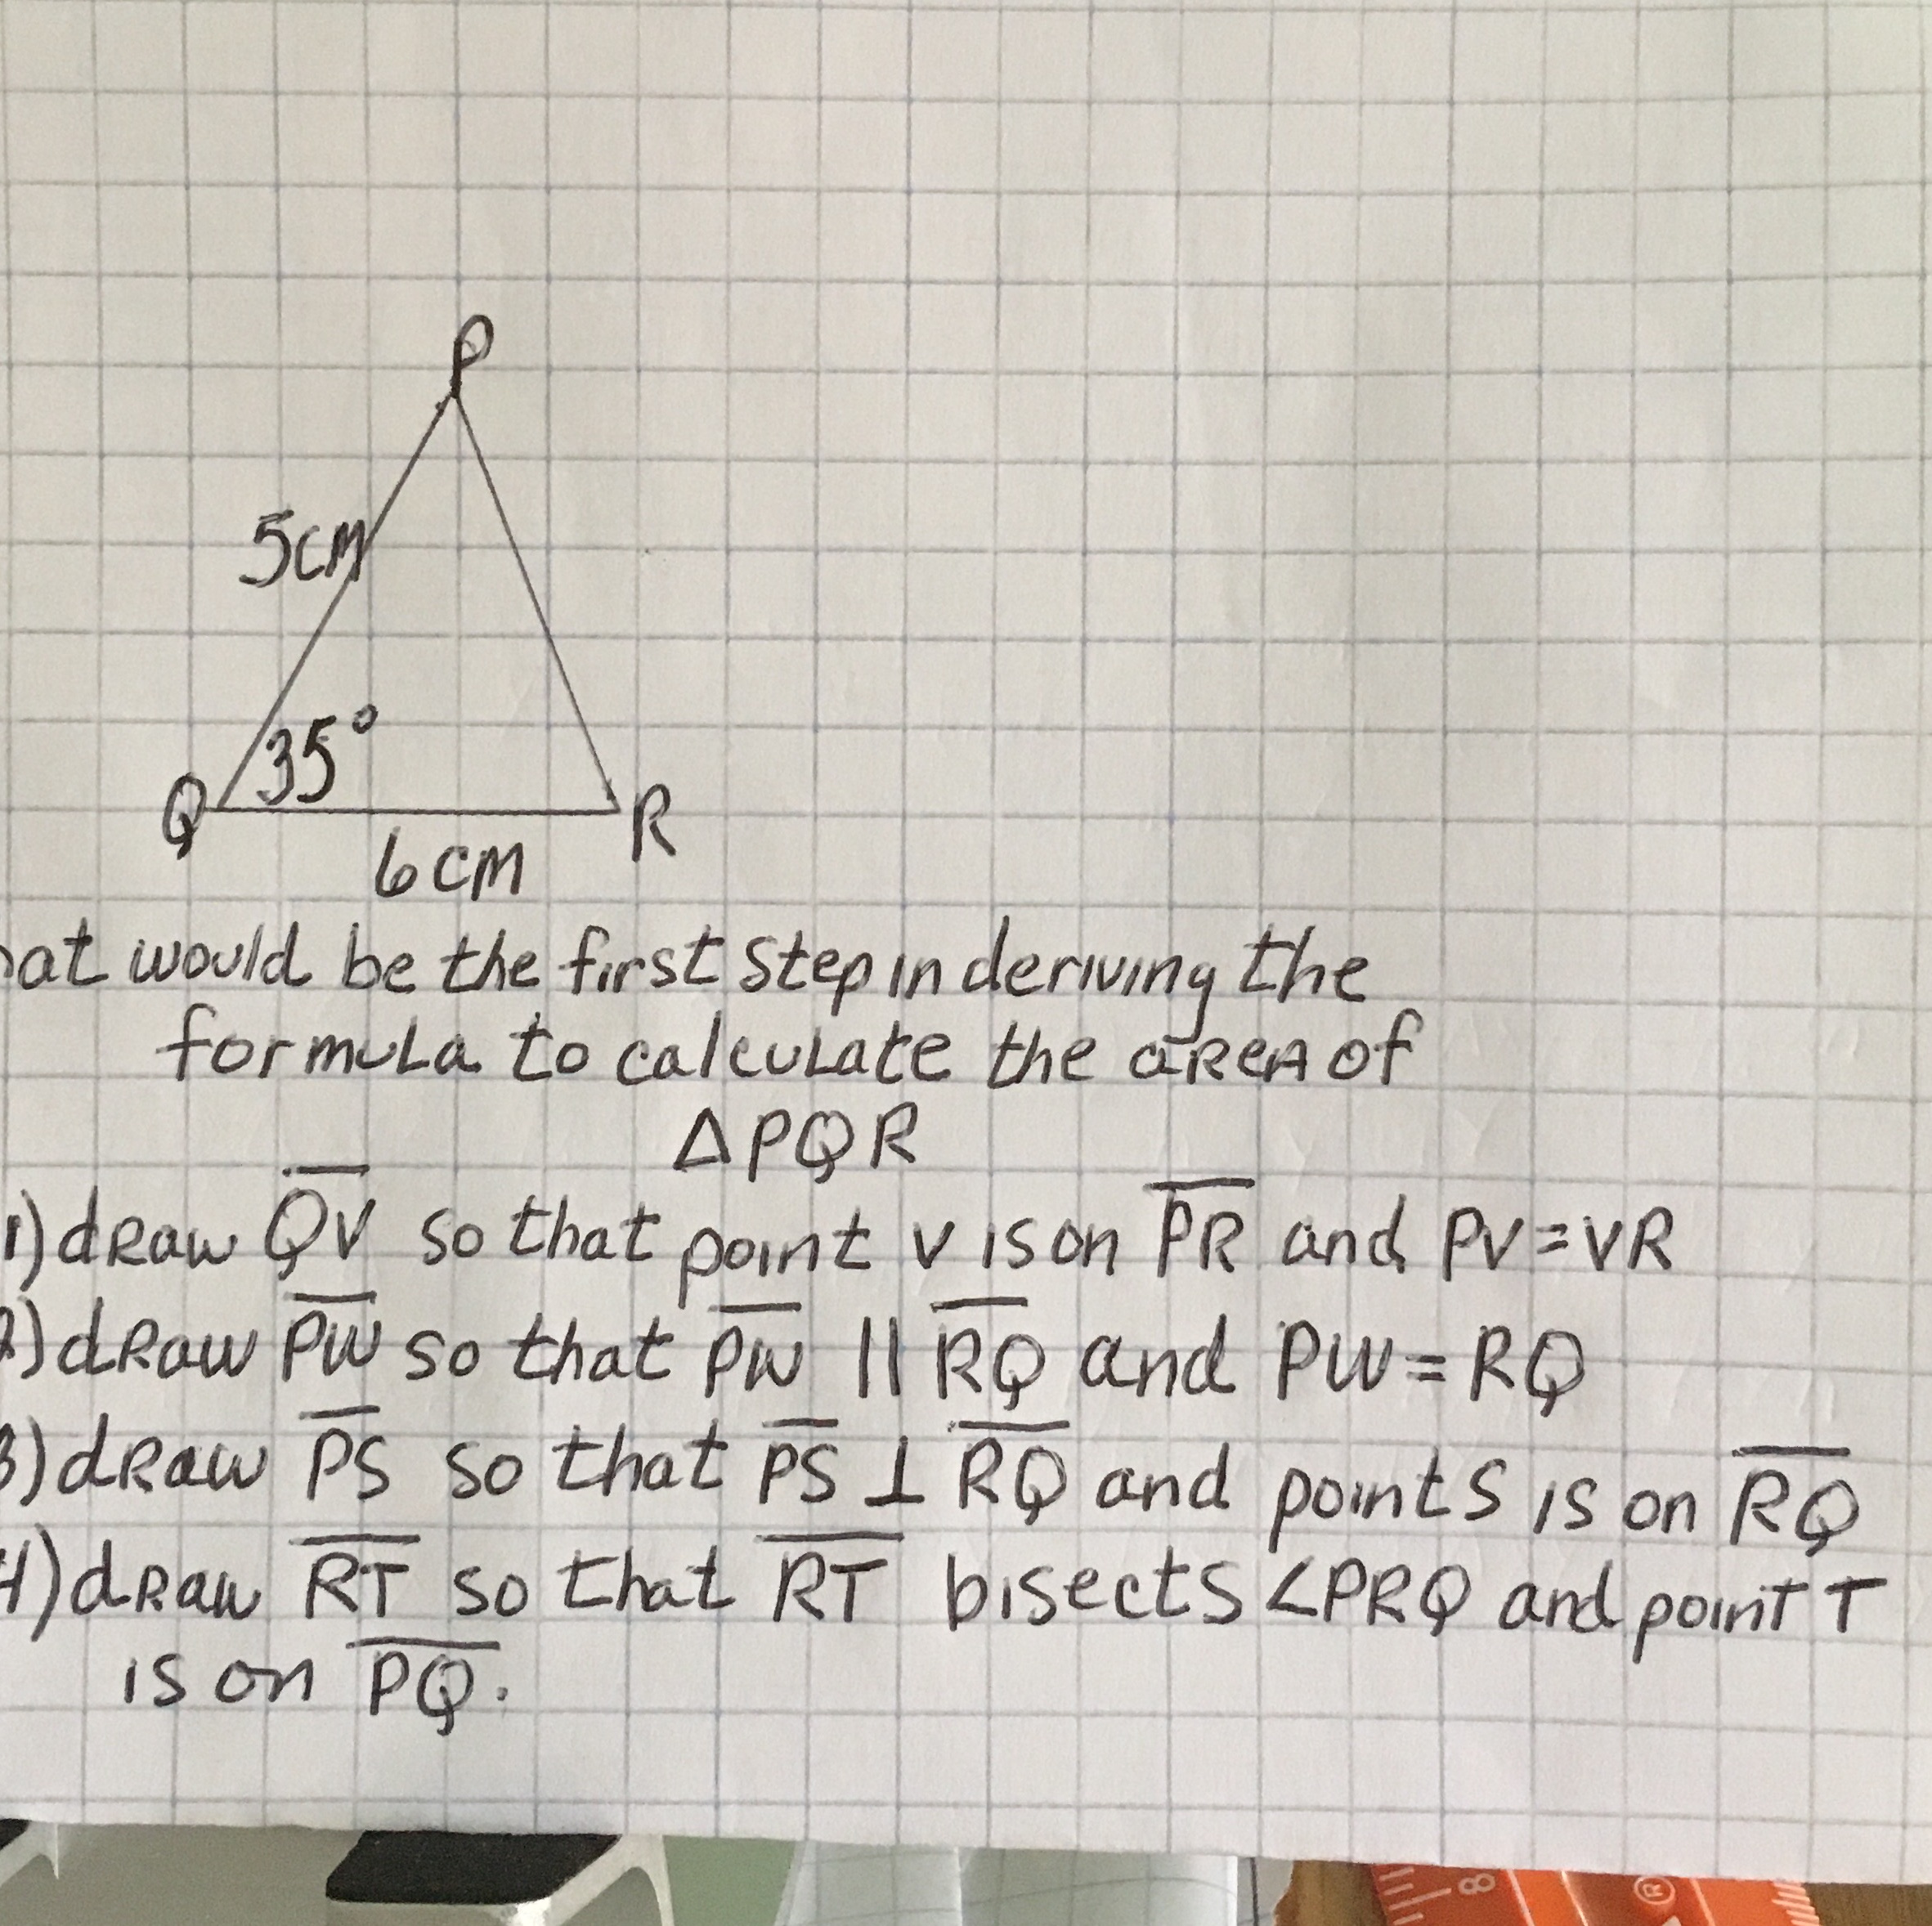 P
5cm
35°
Q R
6cm
would be the first step in deriving the
formula to calculate the area of
△PQR
1) draw QV so that point v is on PR and PV=VR
2) draw PW so that PW || RQ and PW=RQ
3) draw PS so that PS ⊥ RQ and point S is on RQ
4) draw RT so that RT bisects ∠PRQ and point T
is on PQ.
8
®